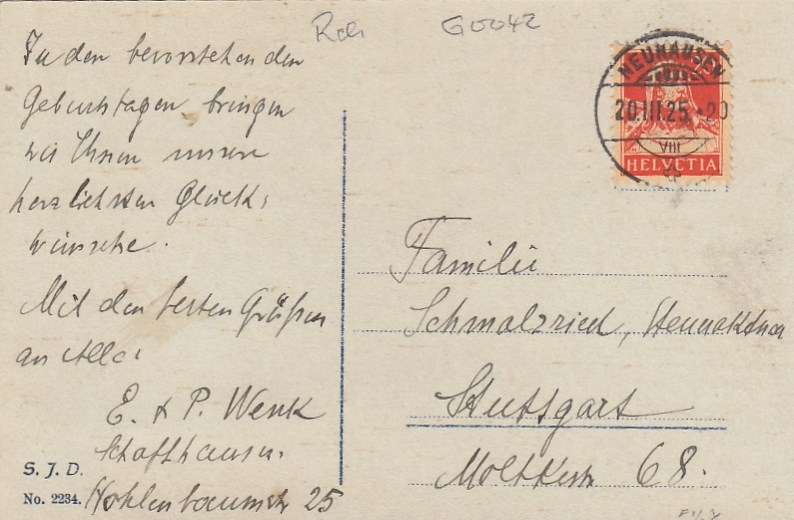 G0042
Zu den bevorstehenden
Geburtstagen bringen
wir Ihnen unsere
herzlichsten Glück-
wünsche.
Mit den besten Grüßen
an Alle
E. & P. Wenk
Schaffhausen.
Hohlenbaumstr 25
S. J. D.
No. 2234.
NEUHAUSEN
20.III.25.
VIII
HELVETIA
Familie
Schmalzried,
Stuttgart
Moltkestr 68.